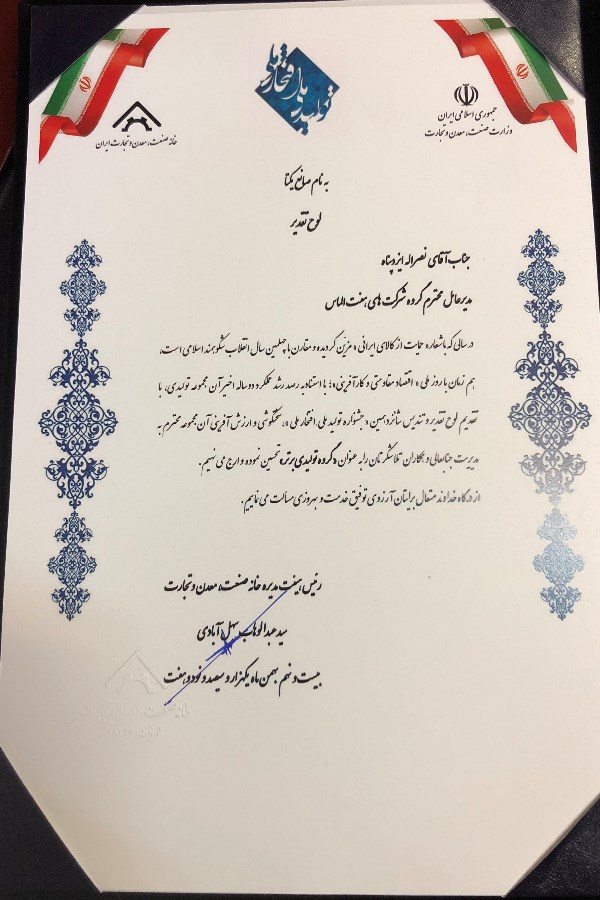 تولید ملی افتخار ملی
جمهوری اسلامی ایران
وزارت صنعت، معدن و تجارت
خانه صنعت، معدن و تجارت ایران
به نام صانع یکتا
لوح تقدیر
جناب آقای نصراله ایزدپناه
مدیرعامل محترم گروه شرکت های هفت الماس
در سالی که با شعار « حمایت از کالای ایرانی » مزین گردیده و مقارن با چهلمین سال انقلاب شکوهمند اسلامی است،
هم زمان با روز ملی « اقتصاد مقاومتی و کارآفرینی »؛ با استناد به رصد رشد عملکرد دو ساله اخیر آن مجموعه تولیدی، با
تقدیم لوح تقدیر و تندیس شانزدهمین « جشنواره تولید ملی، افتخار ملی »، سختکوشی و ارزش آفرینی آن مجموعه محترم به
مدیریت جنابعالی و همکاران تلاشگرتان را به عنوان « گروه تولیدی برتر » تحسین نموده و ارج می نهیم.
از درگاه خداوند متعال برایتان آرزوی توفیق خدمت و بهروزی مسالت می نماییم.
رئیس هیئت مدیره خانه صنعت، معدن و تجارت
سید عبدالوهاب سهل آبادی
بیست و نهم بهمن ماه یکهزار و سیصد و نود و هفت